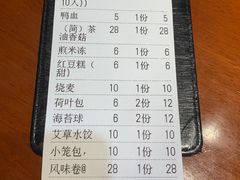 10人))
鸭血 5 1份 5
(简)茶 28 1份 28
油香菇
煎米冻 6 1份 6
红豆糕( 6 1份 6
甜)
烧麦 10 1份 10
荷叶包 6 2份 12
海苔球 6 2份 12
艾草水饺 10 1份 10
小笼包, 10 1份 10
风味卷@ 28 1份 28